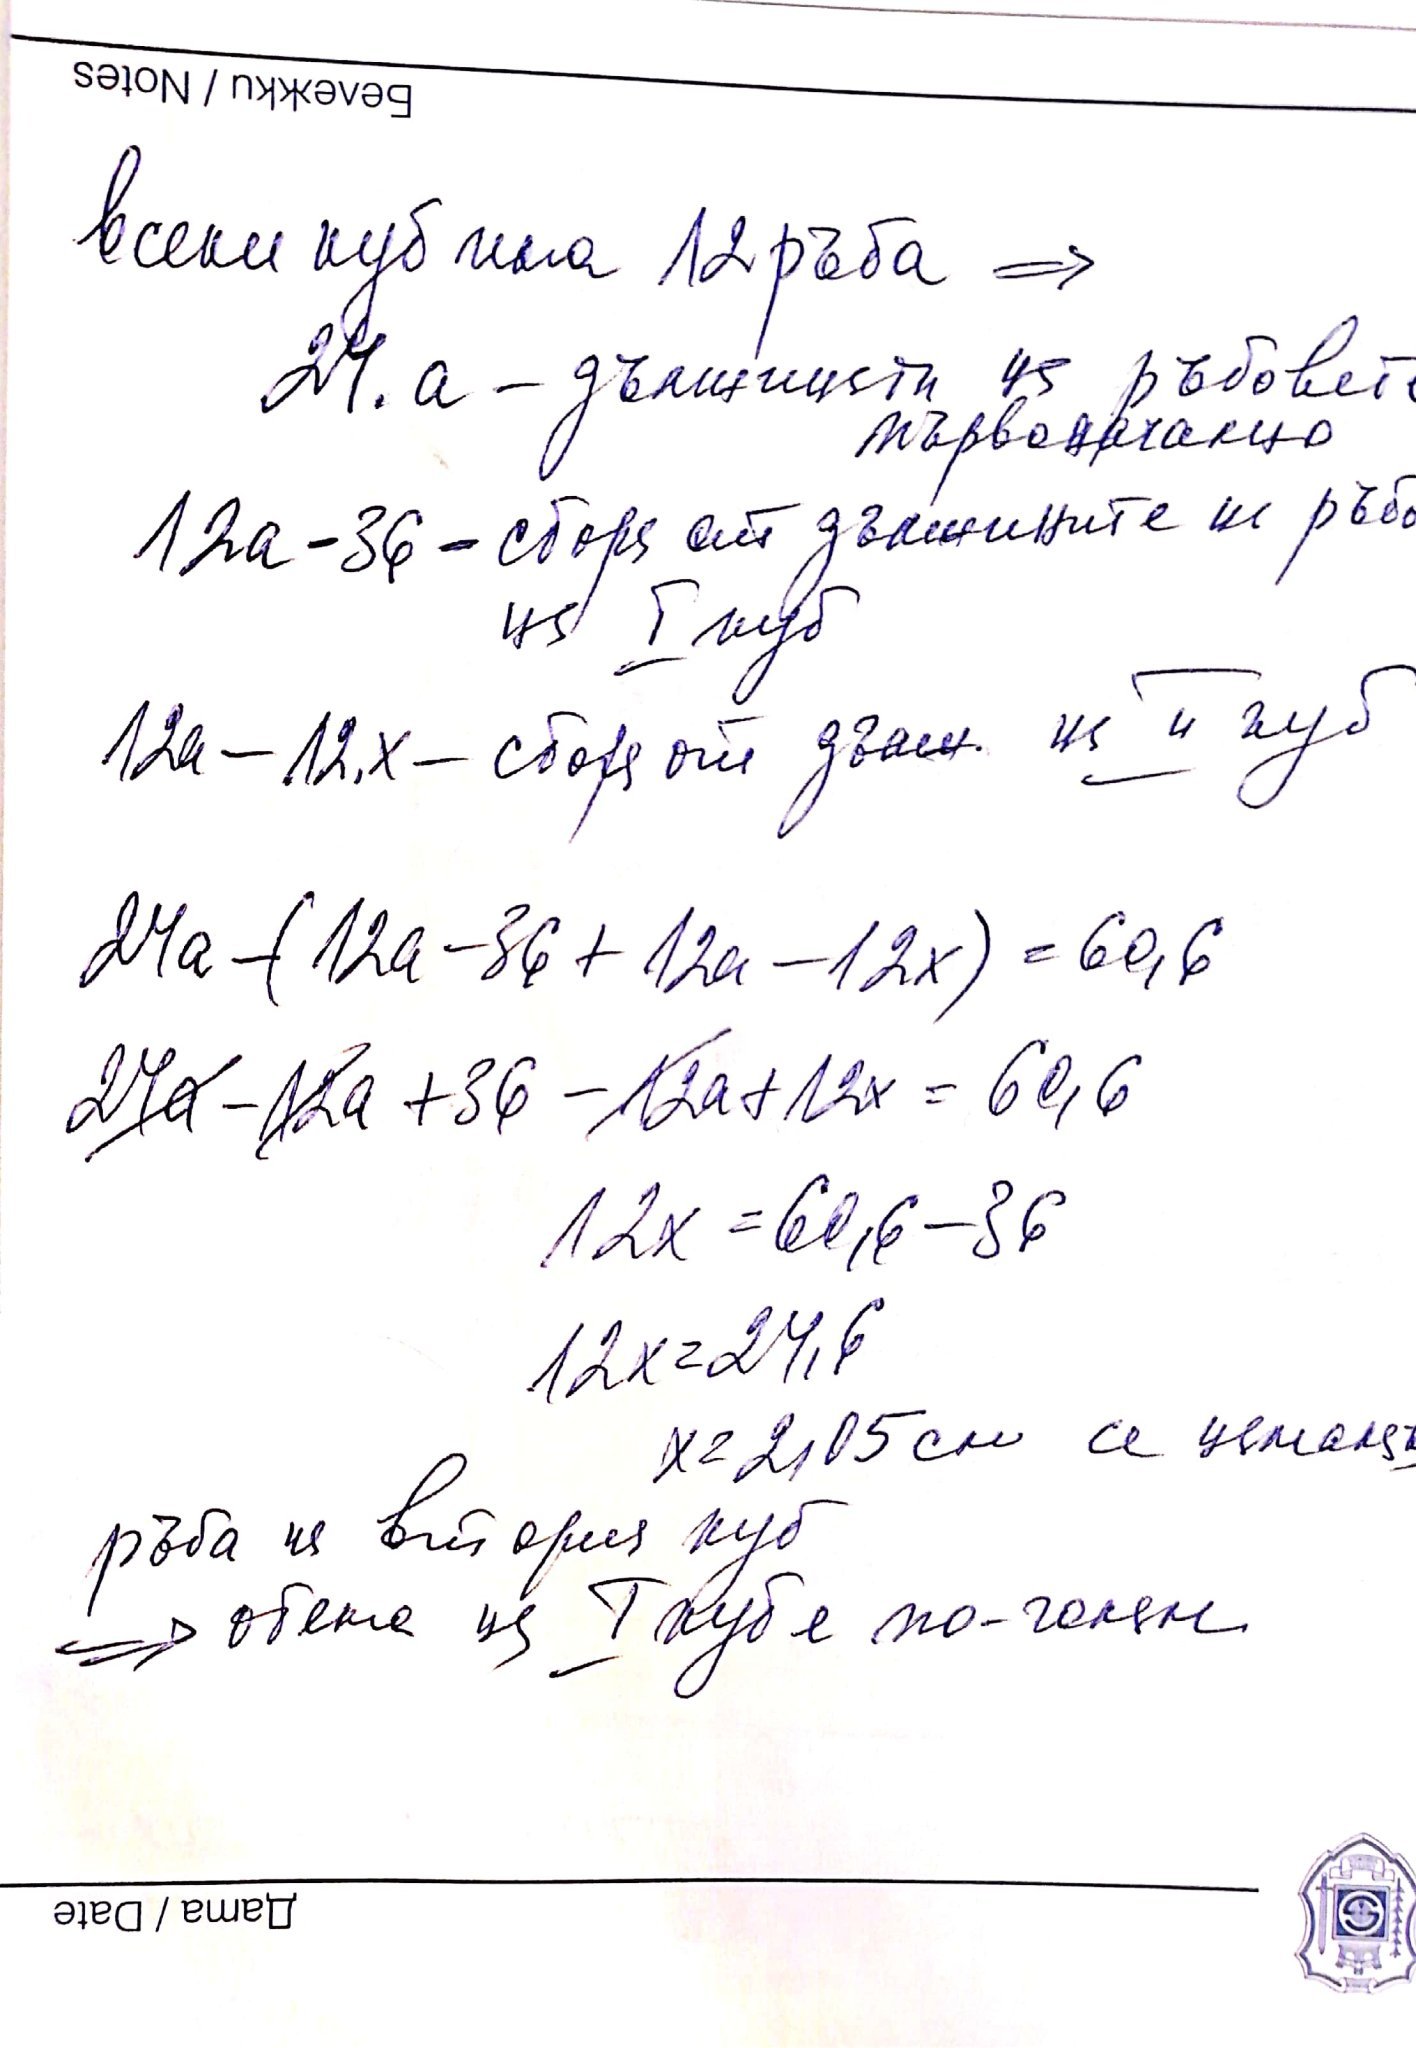 Бележки / Notes
всеки куб има 12 ръба =>
24.a - дължината на ръбовете
първоначално
12a - 36 - сбора от дължините на ръбо
на I куб
12a - 12.x - сбора от длъж. на II куб
24a - (12a - 36 + 12a - 12x) = 60,6
24a - 12a + 36 - 12a + 12x = 60,6
12x = 60,6 - 36
12x = 24,6
x = 2,05 см се намаля
ръба на втория куб
=> обема на I куб е по-голям
Дата / Date